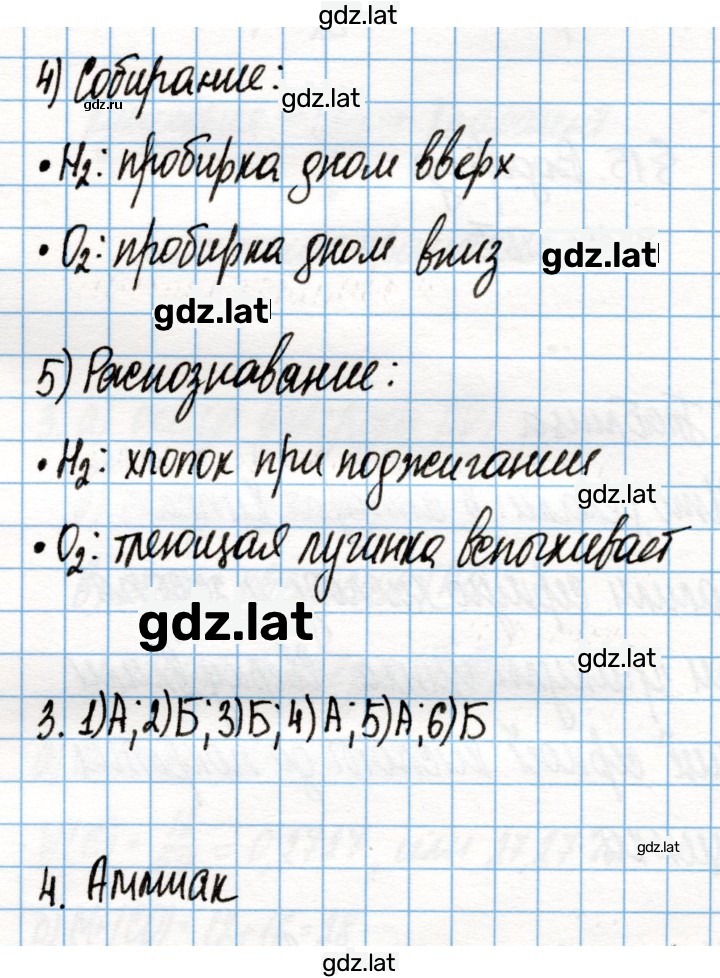 gdz.lat
4) Собирание:
gdz.ru
gdz.lat
• H₂: пробирка дном вверх
• O₂: пробирка дном вниз
gdz.lat
gdz.lat
5) Распознавание:
• H₂: хлопок при поджигании
gdz.lat
• O₂: тлеющая лучинка вспыхивает
gdz.lat
gdz.lat
3. 1)А; 2)Б; 3)Б; 4)А; 5)А; 6)Б
gdz.lat
4. Аммиак
gdz.lat